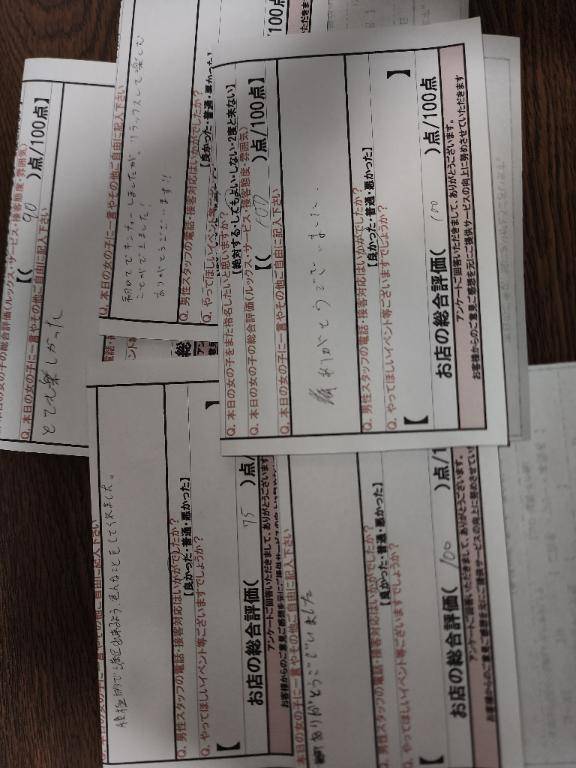 Q. 本日の女の子をまた指名したいと思いますか?
【絶対する・してもよい・しない・2度と来ない】
Q. 本日の女の子の総合評価(ルックス・サービス・接客態度・雰囲気)
【( 100 )点/100点】
Q. 本日の女の子に一言やその他ご自由に記入下さい
ありがとうございました
Q. 男性スタッフの電話・接客対応はいかがでしたか?
【良かった・普通・悪かった】
Q. やってほしいイベント等ございますでしょうか?
【 】
お店の総合評価( 100 )点/100点
アンケートご回答いただきまして、ありがとうございます。
お客様からのご意見ご感想を元にご提供サービスの向上に努めさせていただきます
本日の女の子の総合評価(ルックス・サービス・接客態度・雰囲気)
( 90 )点/100点】
Q. 本日の女の子に一言やその他ご自由に記入下さい
とても楽しかった
Q. 本日の女の子に一言やその他ご自由に記入下さい
初めてでキンチョーしましたが、リラックスして楽しむ
ことができました!
ありがとうございます!!
Q. 男性スタッフの電話・接客対応はいかがでしたか?
【良かった・普通・悪
Q. やってほしいイベント等ござ
の女の子に一言やその他ご自由に記入下さい
積極的で
をしてくれました。
Q. 男性スタッフの電話・接客対応はいかがでしたか?
【良かった・普通・悪かった】
Q. やってほしいイベント等ございますでしょうか?
【 】
お店の総合評価( 75 )点/
アンケートご回答いただきまして、ありがとうございます
本日の女の子に一言やその他ご自由に記入下さい
ありがとうございました
Q. 男性スタッフの電話・接客対応はいかがでしたか?
【良かった・普通・悪かった】
Q. やってほしいイベント等ございますでしょうか?
【
お店の総合評価( 100 )点/1
アンケートご回答いただきまして、ありがとうございます。
お客様からのご意見ご感想を元にご提供サービスの向上に努めさせていた